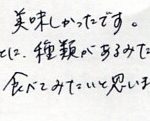 美味しかったです。
とに、種類があるみた
食べてみたいと思いま